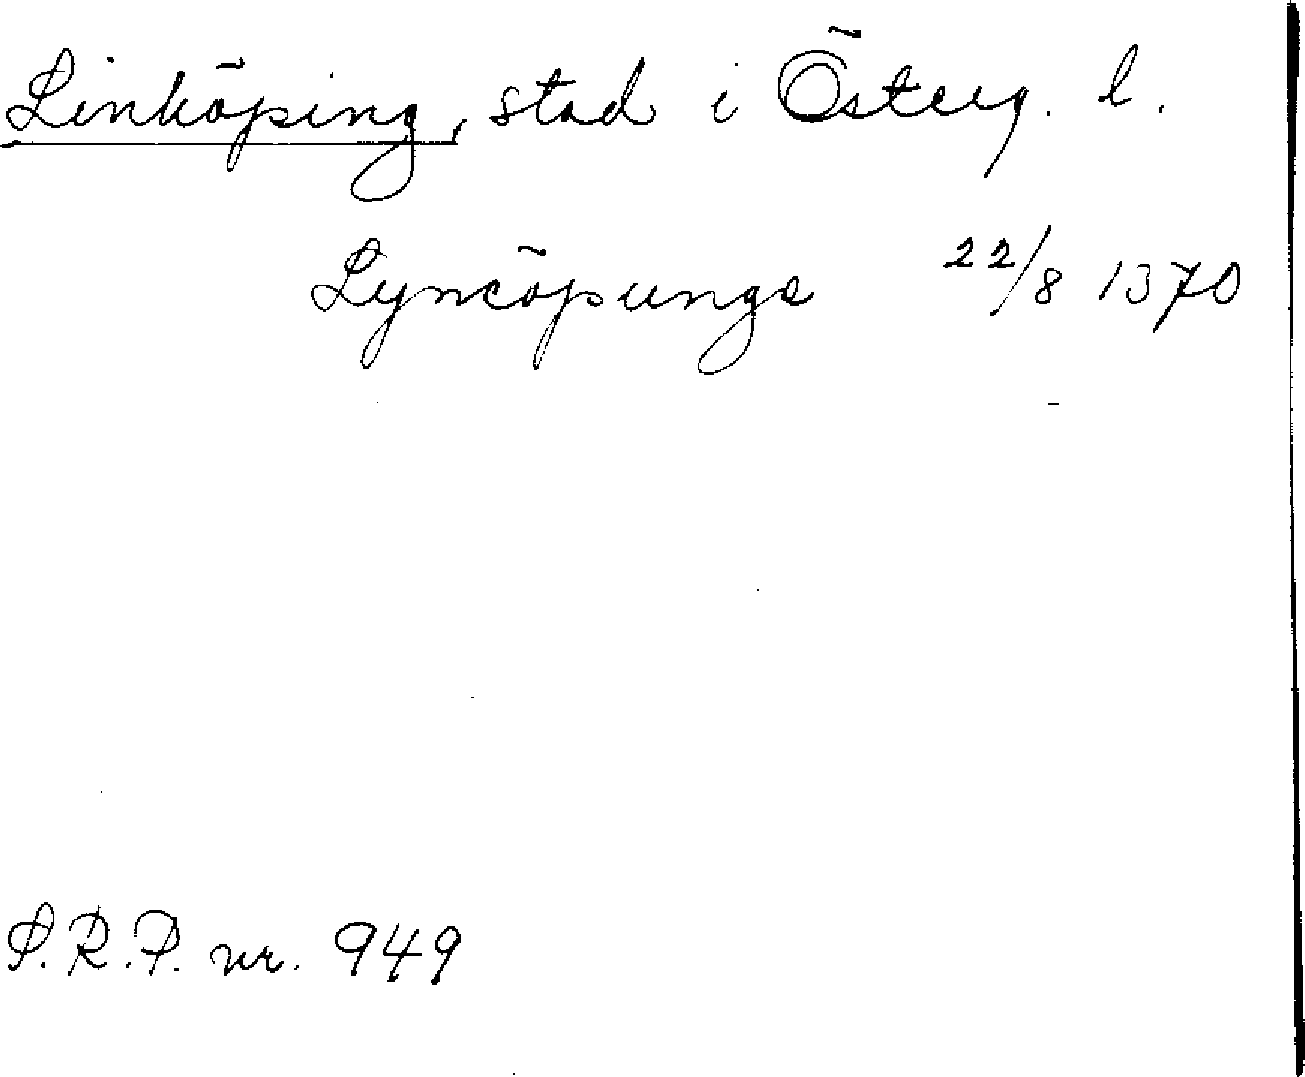 Linköping, stad i Österg. l.
Lyncöpunge 22/8 1370
S.R.P. nr. 949